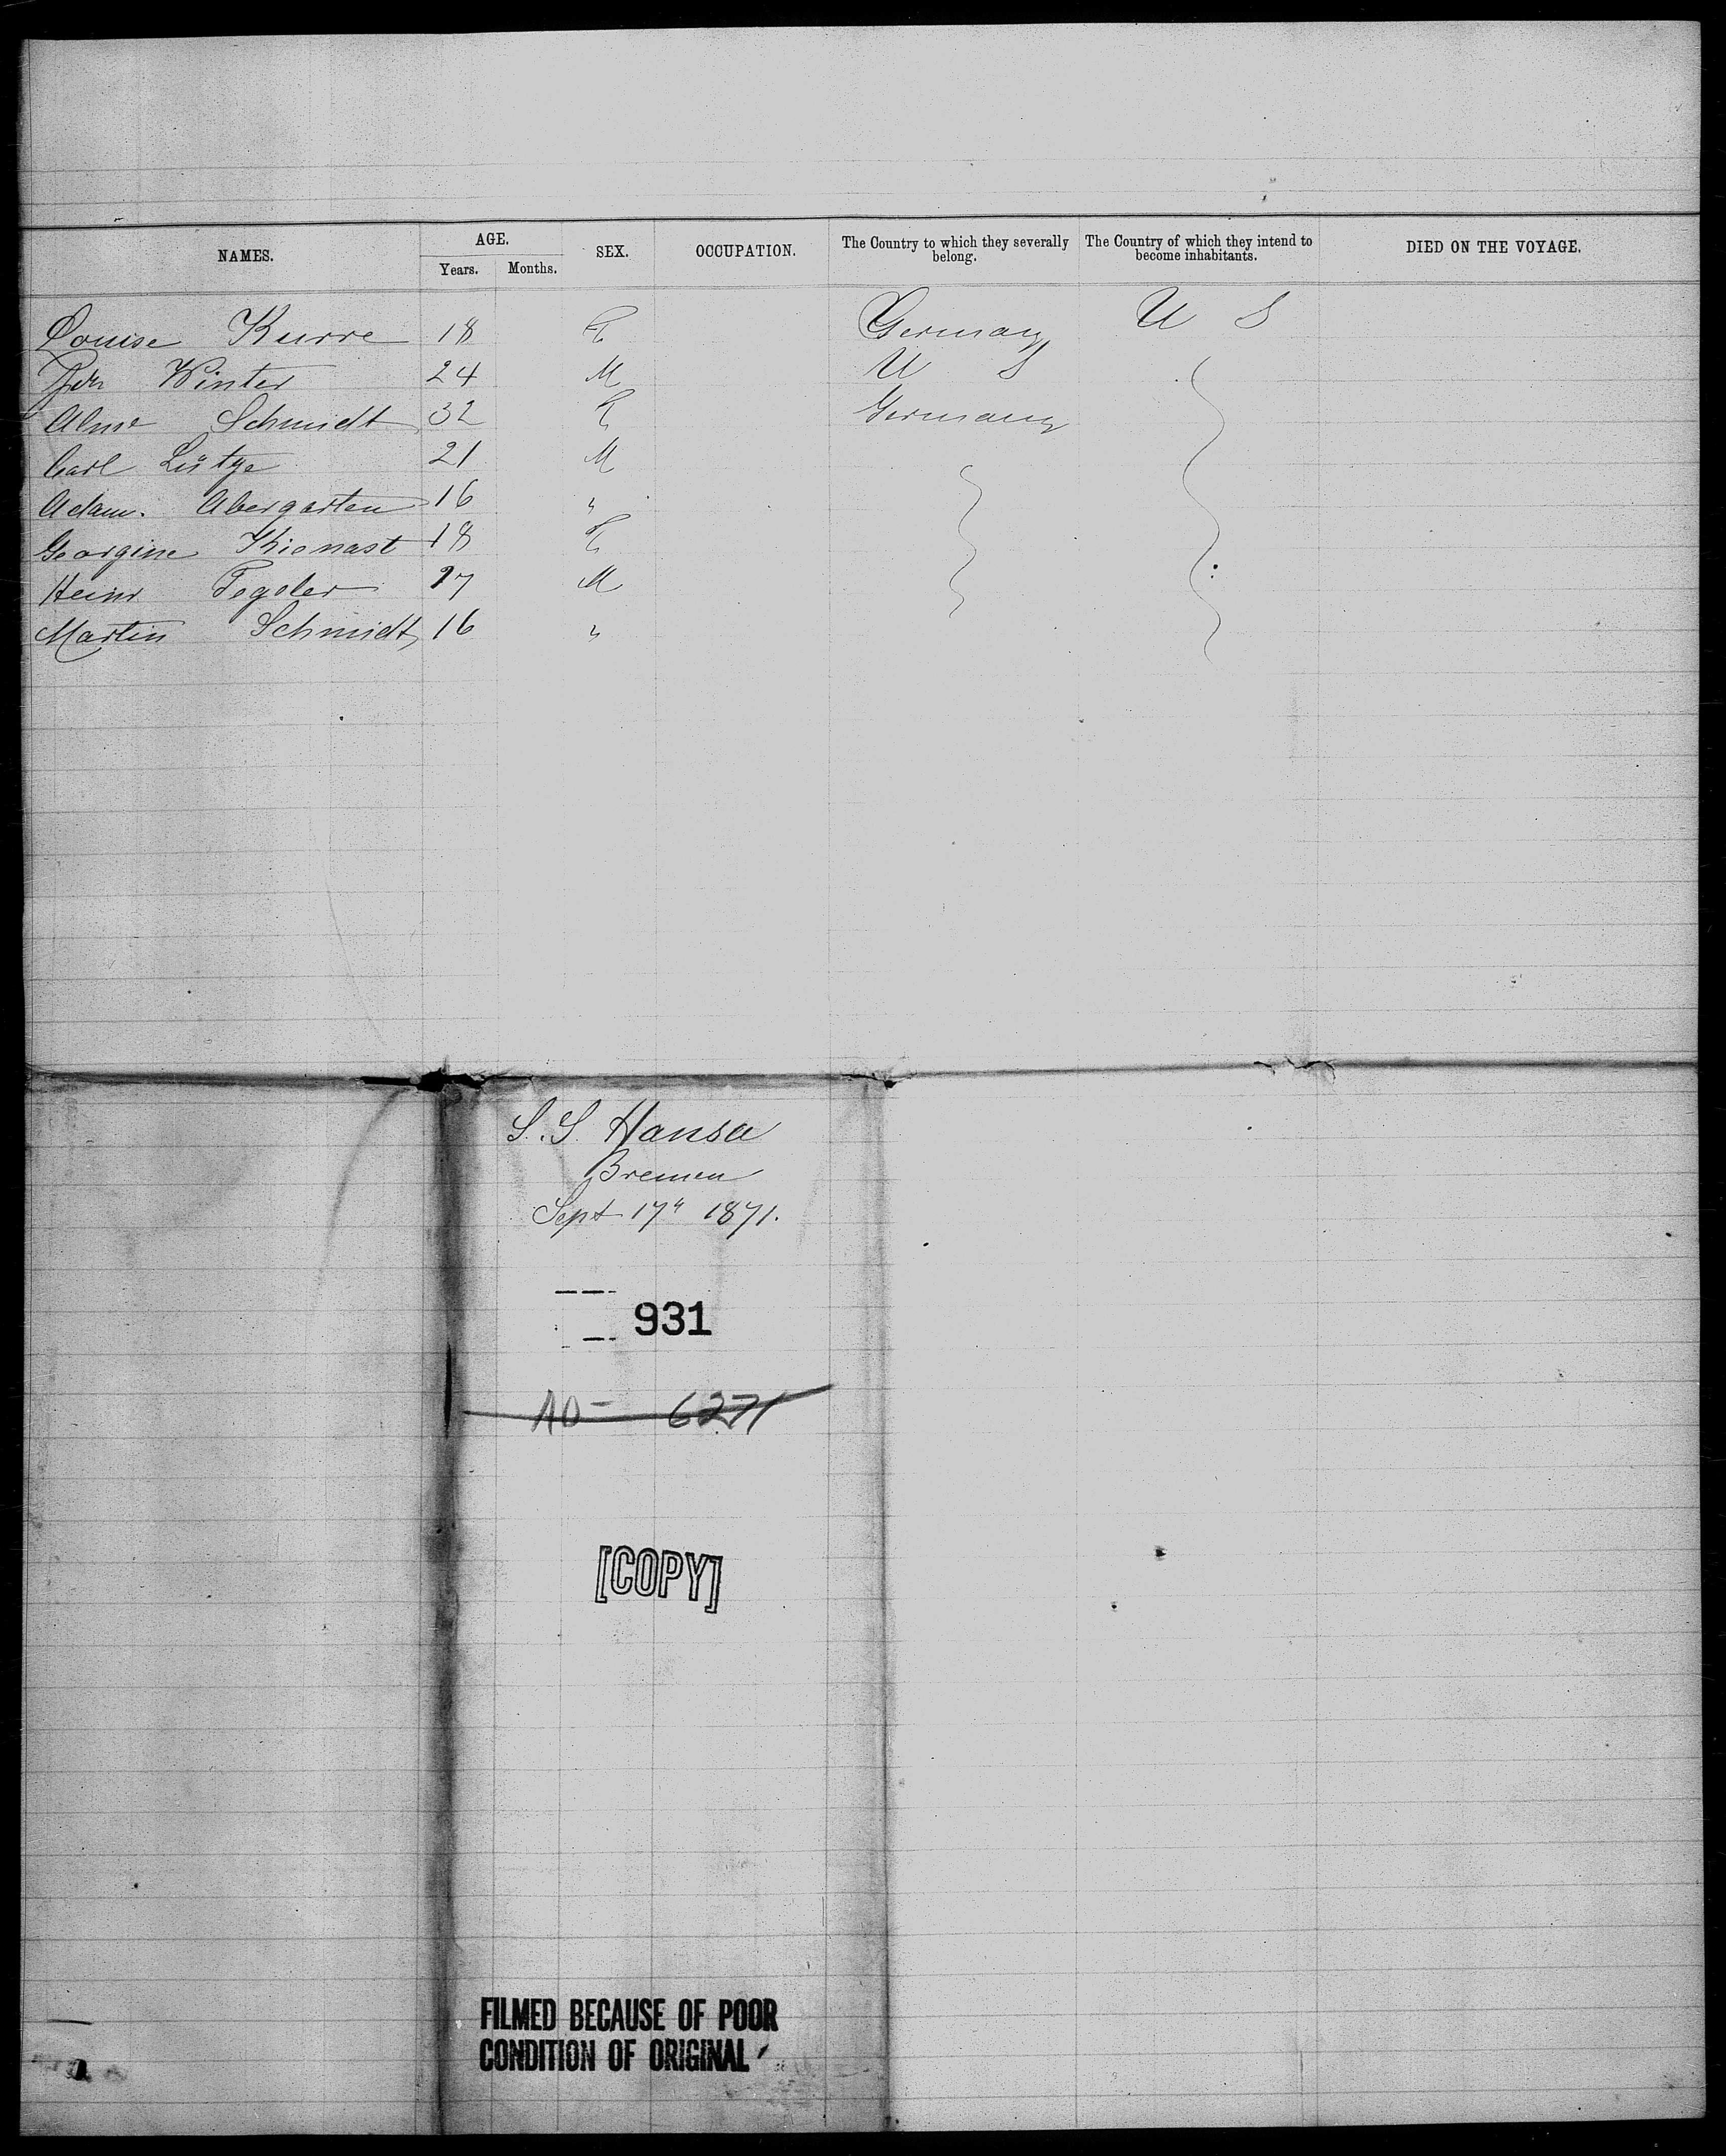 NAMES. AGE. SEX. OCCUPATION. The Country to which they severally belong. The Country of which they intend to become inhabitants. DIED ON THE VOYAGE.
Years. Months.
Louise Kurre 18 F Germany U S
Winter 24 M U S
Schmidt 32 F Germany
Carl Lütge 21 M
Adam. Abergarten 16 "
Georgine Kienast 18 F
Heinr Tegeler 27 M
Martin Schmidt 16 "
S.S. Hansa
Bremen
Sept 17" 1871.
931
AD- 6271
[COPY]
FILMED BECAUSE OF POOR
CONDITION OF ORIGINAL